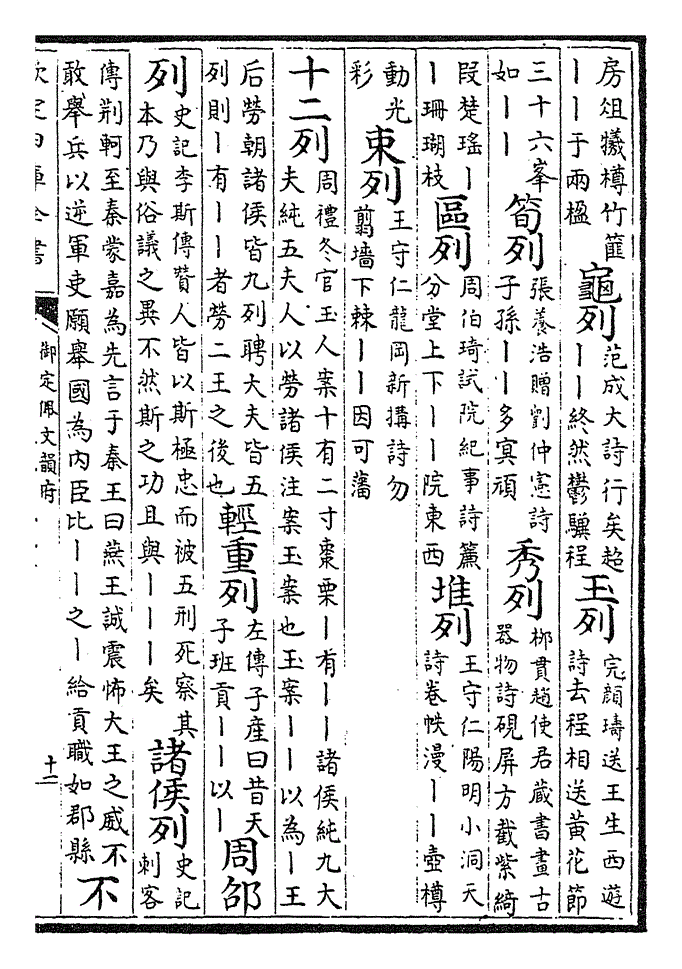 房俎犧樽竹簠
丨丨于兩楹
龜列
范成大詩行矣超
丨丨終然鬱驥程
玉列
完顔璹送王生西遊
詩去程相送黄花節
三十六峯
如丨丨
筍列
張養浩贈劉仲憲詩
子孫丨丨多冥頑
秀列
柳貫趙使君藏書畫古
器物詩硯屏方截紫綺
段楚瑤丨
丨珊瑚枝
區列
周伯琦試院紀事詩簾
分堂上下丨丨院東西
堆列
王守仁陽明小洞天
詩卷帙漫丨丨壺樽
動光
彩
束列
王守仁龍岡新搆詩勿
翦墻下棘丨丨因可藩
十二列
周禮冬官玉人案十有二寸棗栗丨有丨丨諸侯純九大
夫純五夫人以勞諸侯注案玉案也玉案丨丨以為丨王
后勞朝諸侯皆九列聘大夫皆五
列則丨有丨丨者勞二王之後也
輕重列
左傳子産曰昔天
子班貢丨丨以丨
周邵
列
史記李斯傳贊人皆以斯極忠而被五刑死察其
本乃與俗議之異不然斯之功且與丨丨丨矣
諸侯列
史記
刺客
傳荆軻至秦蒙嘉為先言于秦王曰燕王誠震怖大王之威不
敢舉兵以逆軍吏願舉國為内臣比丨丨之丨給貢職如郡縣
不
欽定四庫全書
御定佩文韻府
十二